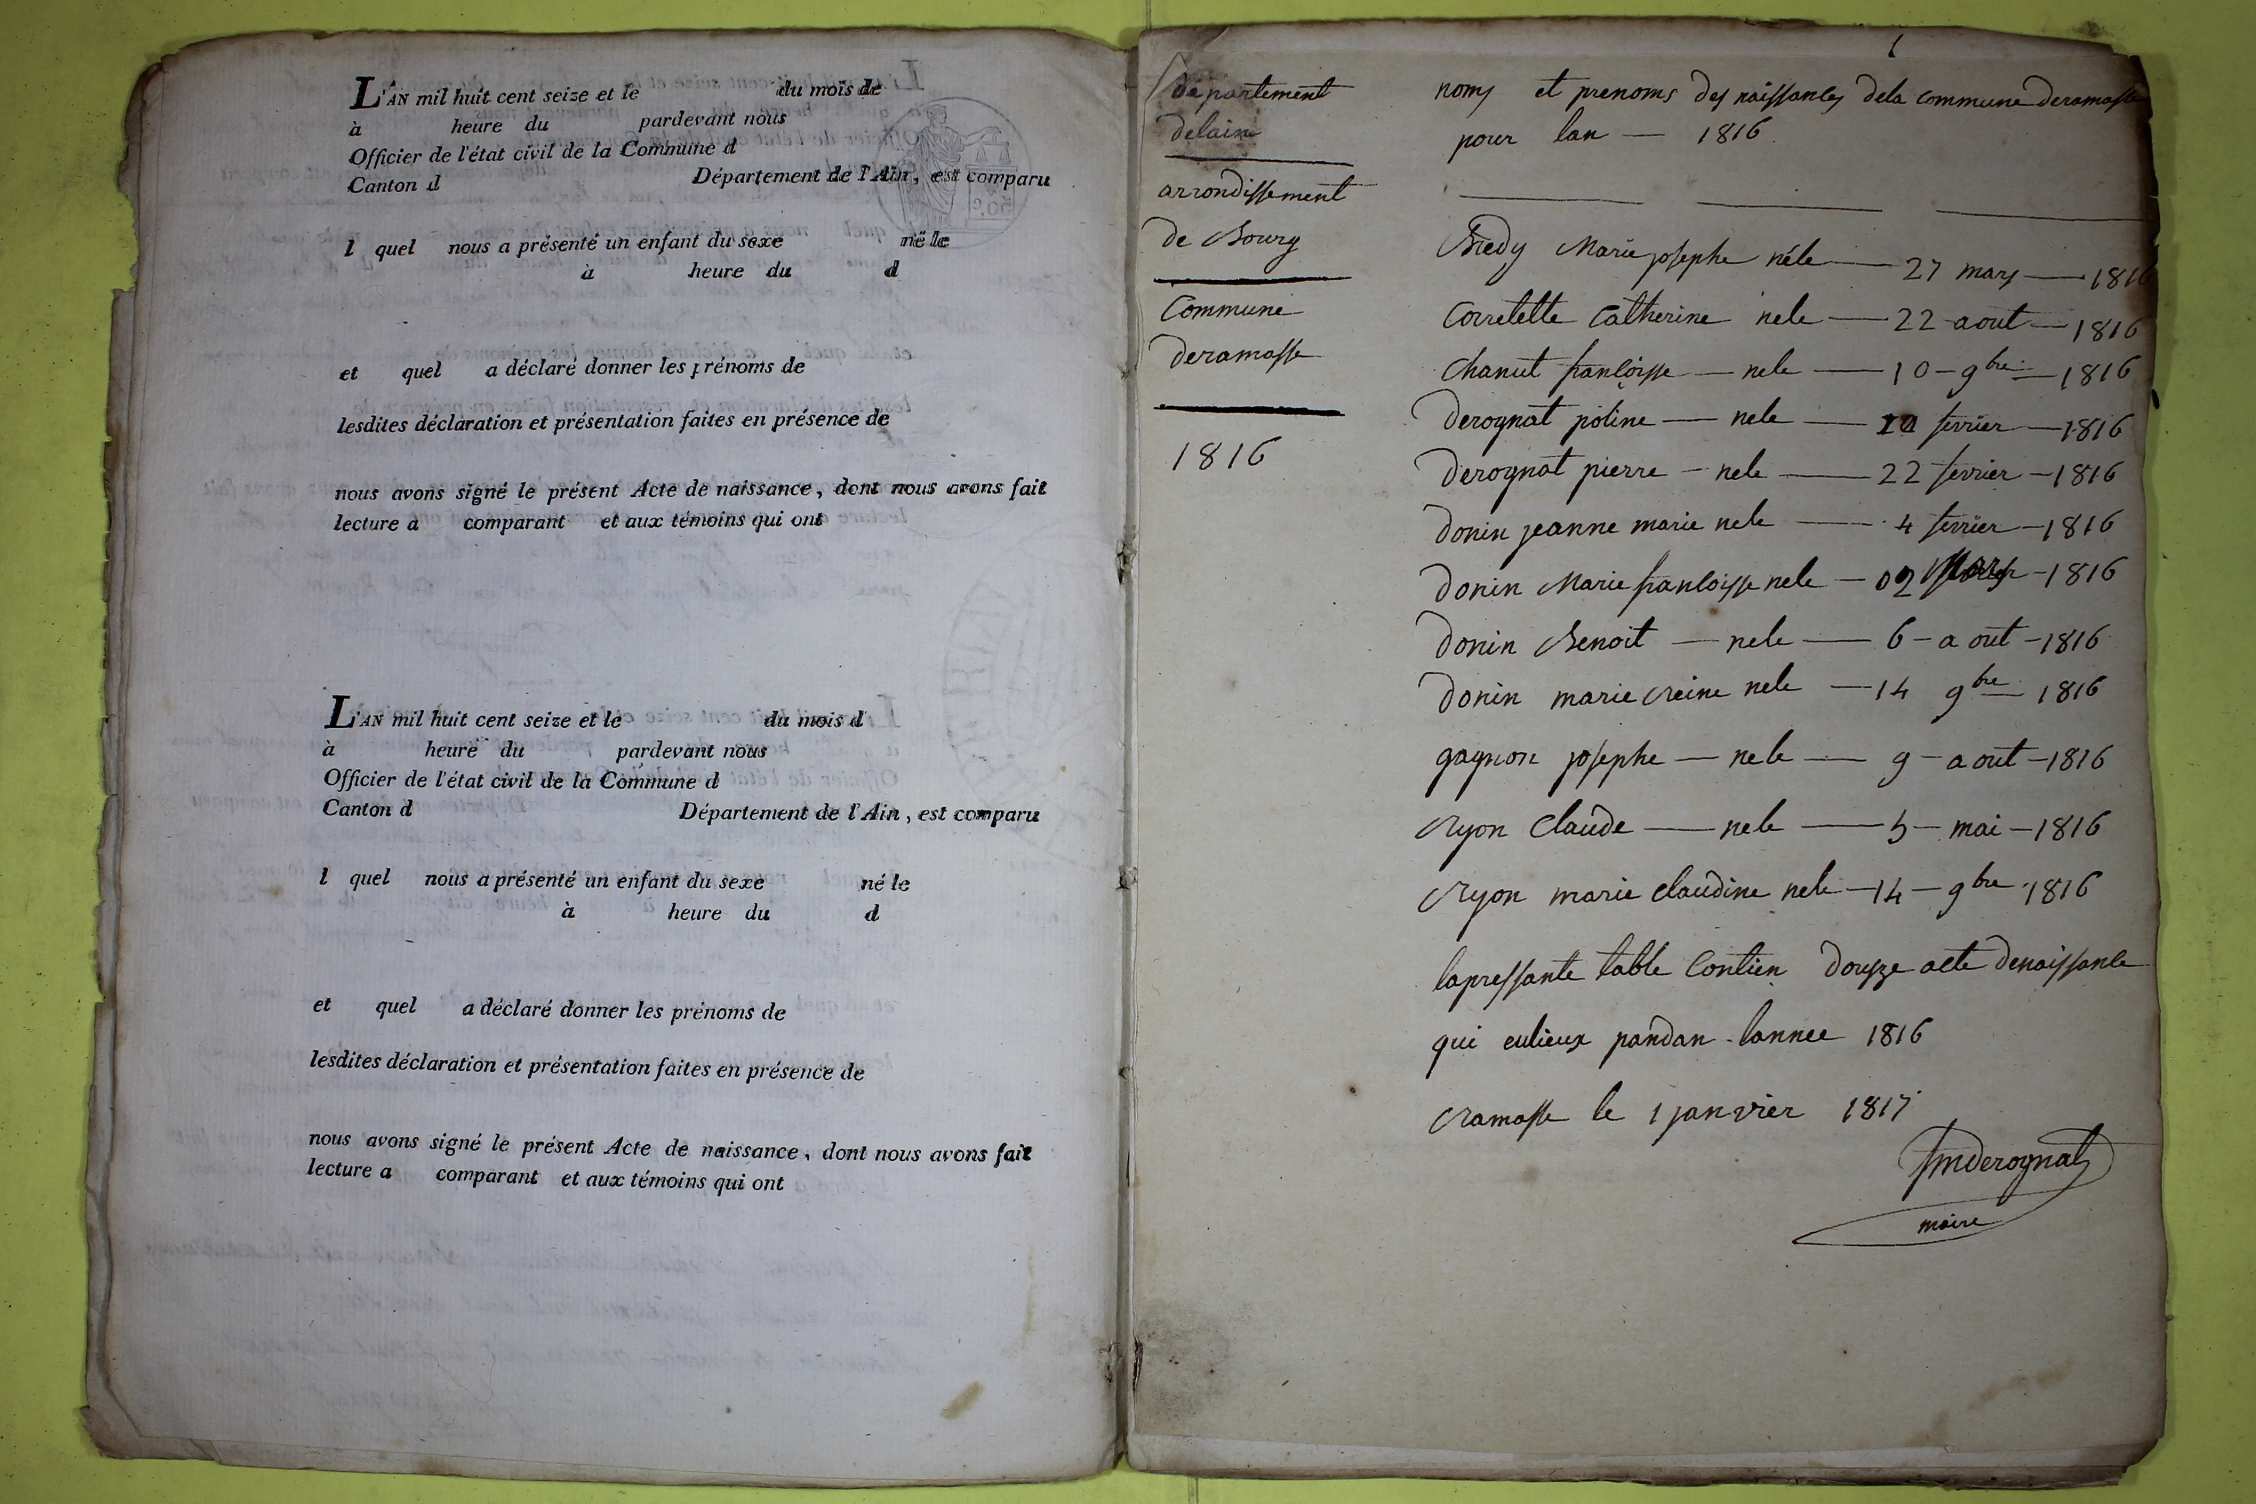 L'AN mil huit cent seize et le du mois de
à heure du pardevant nous
Officier de l'état civil de la Commune d
Canton d Département de l'Ain, est comparu
l quel nous a présenté un enfant du sexe né le
à heure du d
et quel a déclaré donner les prénoms de
lesdites déclaration et présentation faites en présence de
nous avons signé le présent Acte de naissance, dont nous avons fait
lecture a comparant et aux témoins qui ont
L'AN mil huit cent seize et le du mois d
à heure du pardevant nous
Officier de l'état civil de la Commune d
Canton d Département de l'Ain, est comparu
l quel nous a présenté un enfant du sexe né le
à heure du d
et quel a déclaré donner les prénoms de
lesdites déclaration et présentation faites en présence de
nous avons signé le présent Acte de naissance, dont nous avons fait
lecture a comparant et aux témoins qui ont
1
département
delain
arrondissement
de Bourg
Commune
deramasse
1816
noms et prenoms des naissances dela commune deramasse
pour lan — 1816
Biedy Marie josephe néle — 27 mars — 1816
Corretette Catherine nele — 22 aout — 1816
Chanut françoisse — nele — 10 - 9bre — 1816
derognat poline — nele — fevrier — 1816
derognat pierre — nele — 22 fevrier — 1816
donin jeanne marie nele — 4 fevrier — 1816
donin Marie francoisse nele — 02 Mars — 1816
donin Benoit — nele — 6 - aout - 1816
donin marie Reine nele — 14 9bre — 1816
gagnon josephe — nele — 9 - aout - 1816
Ryon Claude — nele — 5 - mai - 1816
Ryon marie claudine nele - 14 - 9bre 1816
lapressante table Contien dousze acte denaissance
qui eulieux pandan lannee 1816
Ramasse le 1 janvier 1817
jmderognat
maire